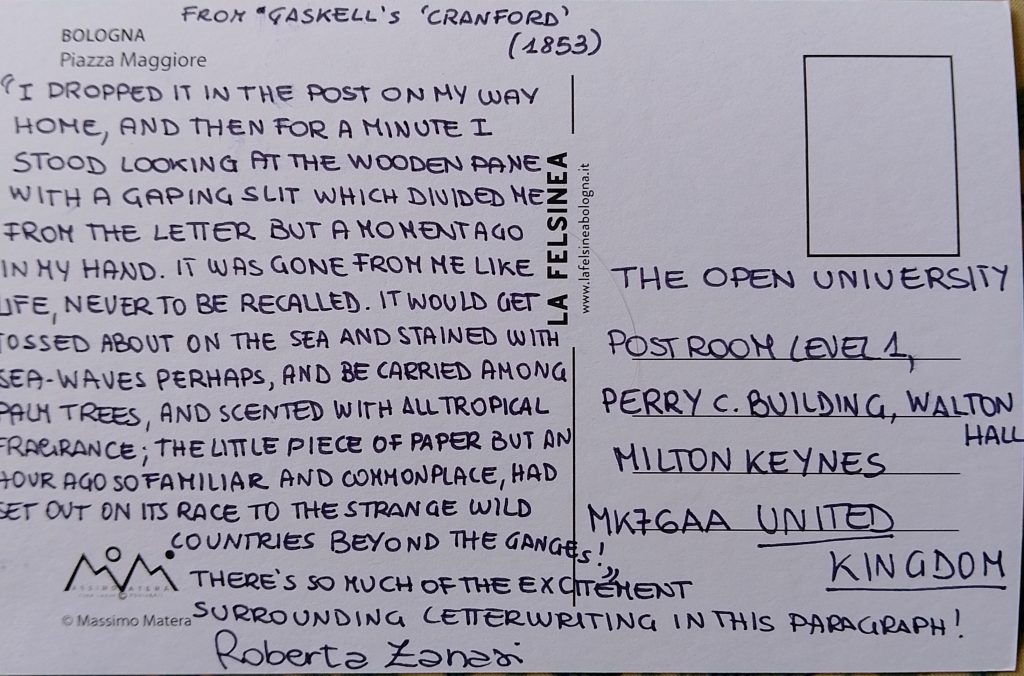 FROM "GASKELL'S 'CRANFORD'
(1853)
BOLOGNA
Piazza Maggiore
"I DROPPED IT IN THE POST ON MY WAY
HOME, AND THEN FOR A MINUTE I
STOOD LOOKING AT THE WOODEN PANE
WITH A GAPING SLIT WHICH DIVIDED ME
FROM THE LETTER BUT A MOMENT AGO
IN MY HAND. IT WAS GONE FROM ME LIKE
LIFE, NEVER TO BE RECALLED. IT WOULD GET
TOSSED ABOUT ON THE SEA AND STAINED WITH
SEA-WAVES PERHAPS, AND BE CARRIED AMONG
PALM TREES, AND SCENTED WITH ALL TROPICAL
FRAGRANCE; THE LITTLE PIECE OF PAPER BUT AN
HOUR AGO SO FAMILIAR AND COMMONPLACE, HAD
SET OUT ON ITS RACE TO THE STRANGE WILD
COUNTRIES BEYOND THE GANGES!"
THERE'S SO MUCH OF THE EXCITEMENT
SURROUNDING LETTERWRITING IN THIS PARAGRAPH!
Roberta Zanasi
© Massimo Matera
LA FELSINEA
www.lafelsineabologna.it
THE OPEN UNIVERSITY
POST ROOM LEVEL 1,
PERRY C. BUILDING, WALTON
HALL
MILTON KEYNES
MK76AA UNITED
KINGDOM